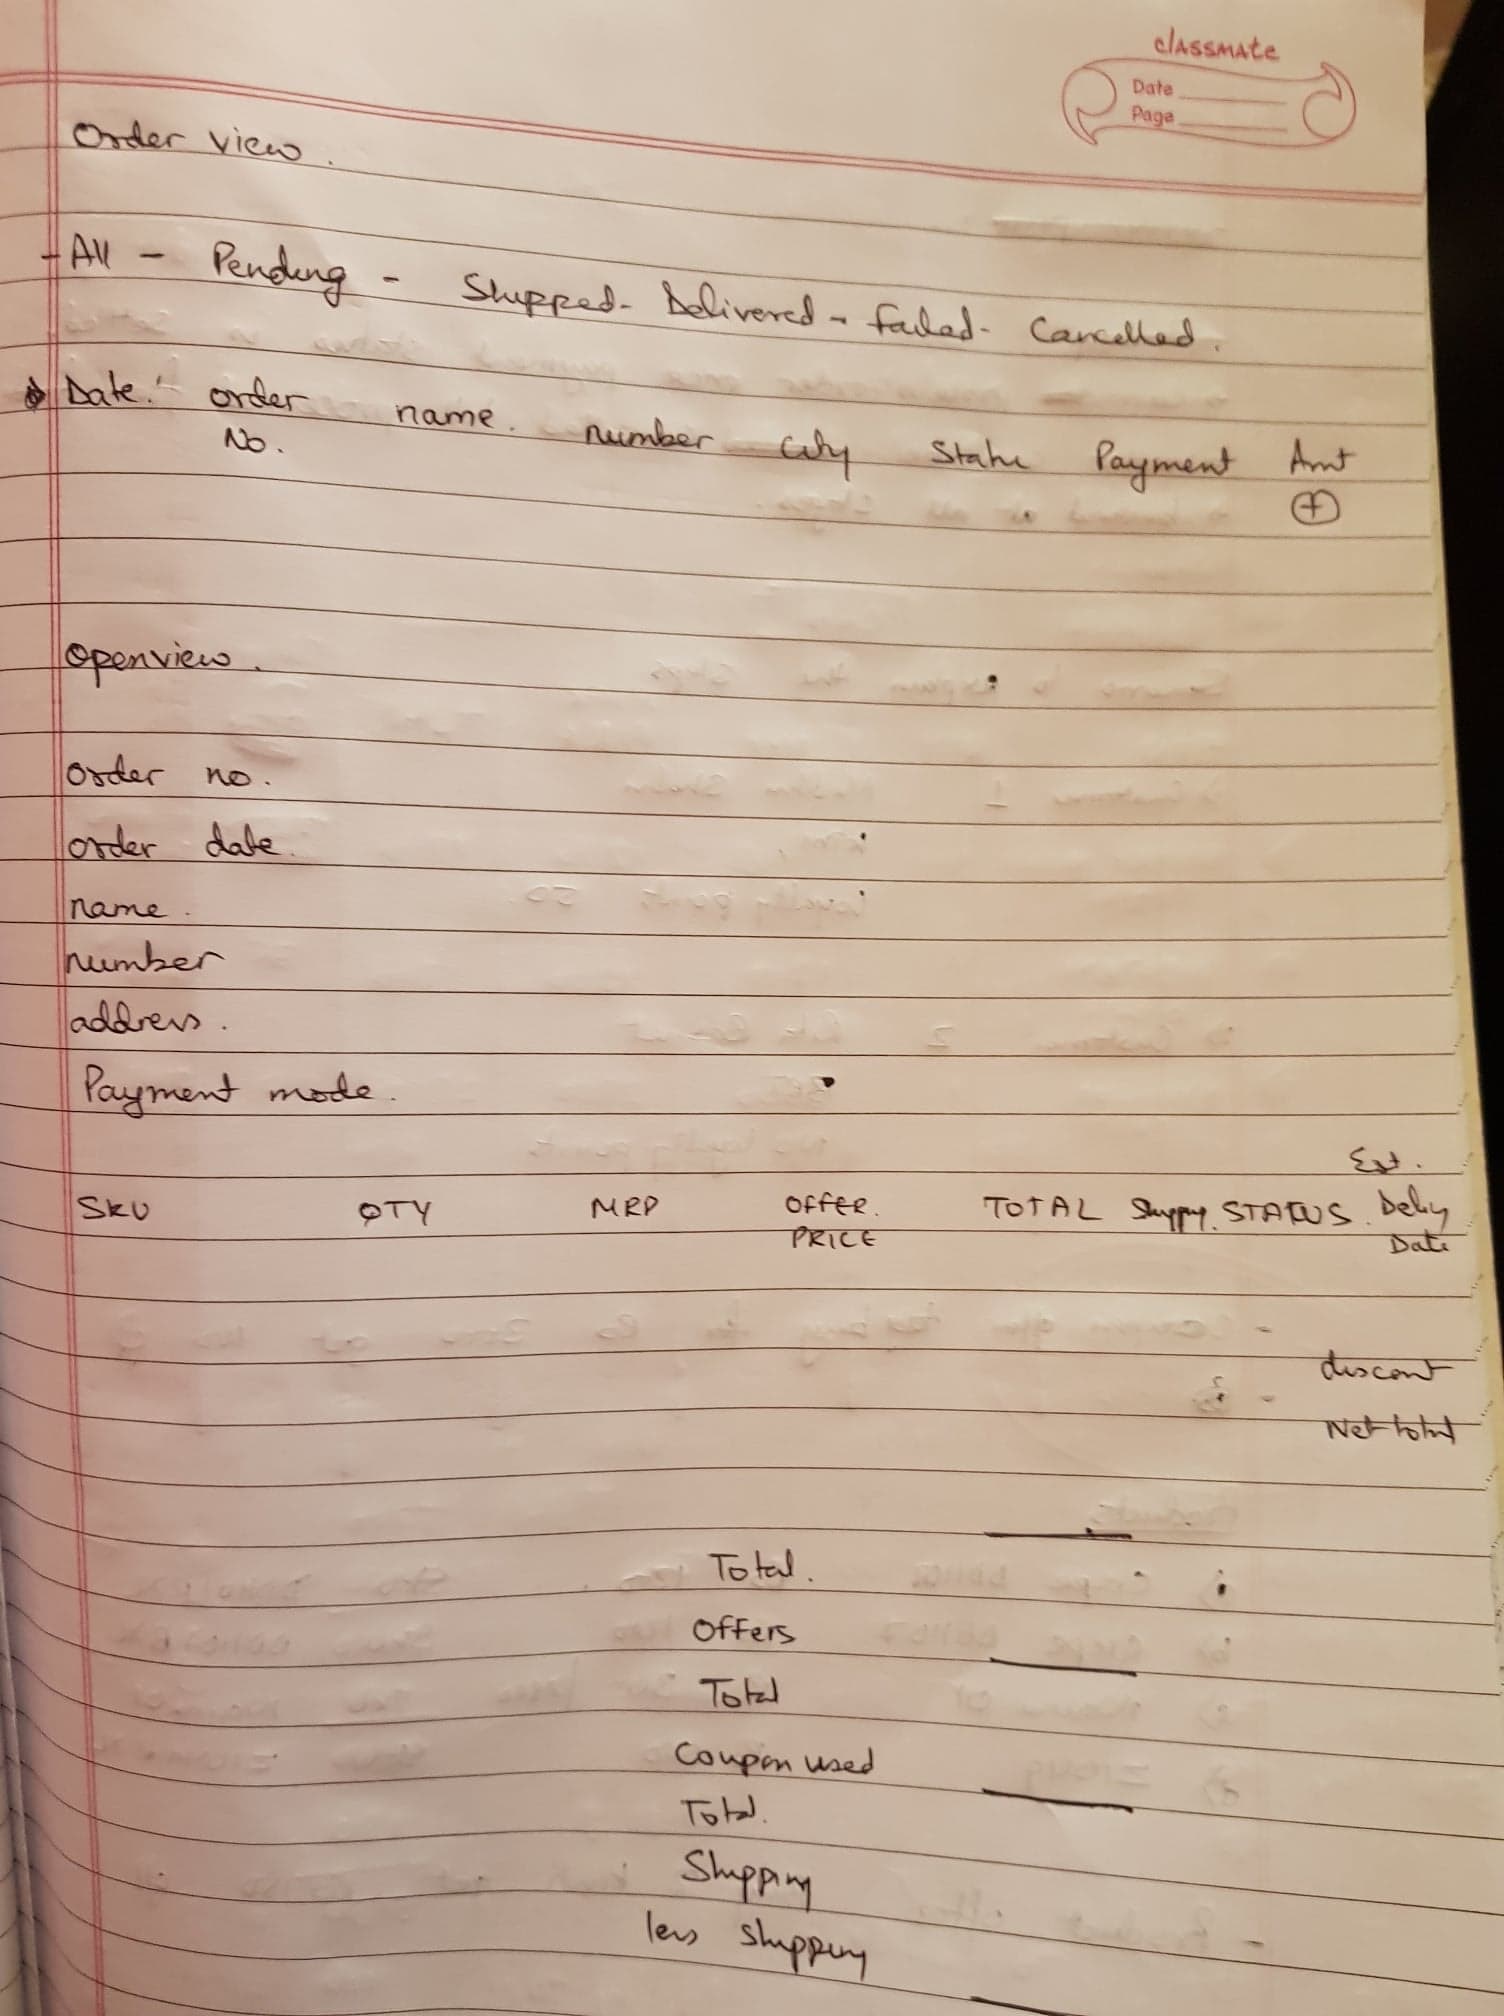 classmate
Date
Page
Order view.
- All - Pending - Shipped - Delivered - failed - Cancelled.
Date. order name. number City State Payment Amt
No. +
Openview.
order no.
order date.
name.
number
address.
Payment mode.
Est.
SKU QTY MRP OFFER. TOTAL Shippg. STATUS. Delivy
PRICE Date
discont
Net total
Total.
Offers
Total
Coupon used
Total.
Shipping
less shipping